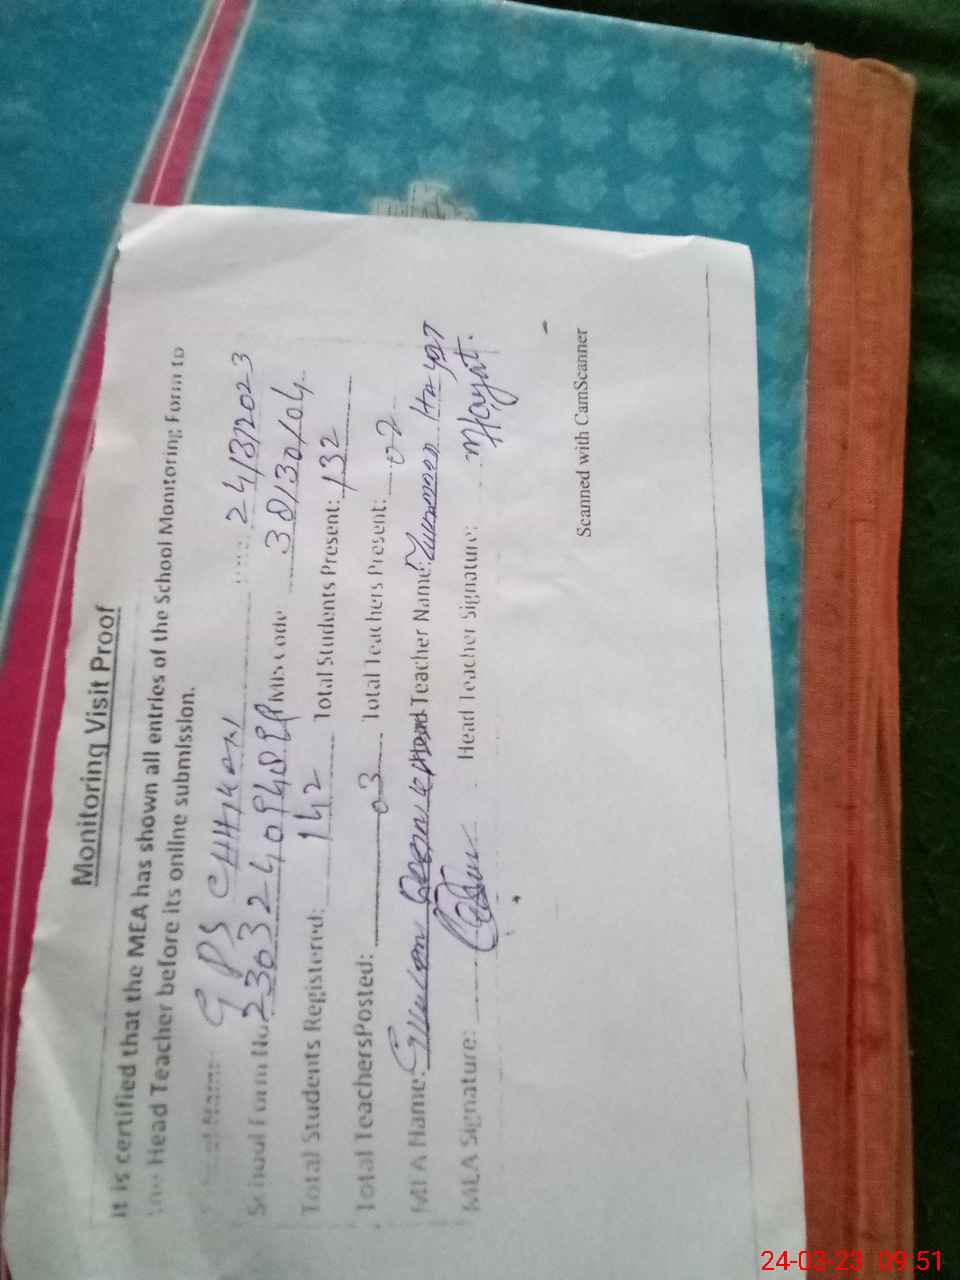 Monitoring Visit Proof
It is certified that the MEA has shown all entries of the School Monitoring Form to
the Head Teacher before its online submission.
School Name: GPS Date: 24/3/2023
School Form No. Mis code 38130104
Total Students Registered: 142 Total Students Present: 132
Total TeachersPosted: 03 Total Teachers Present: 02
MEA Name: Head Teacher Name: Hayat
MEA Signature: Head Teacher Signature: MHayat.
Scanned with CamScanner
24-03-23 09:51